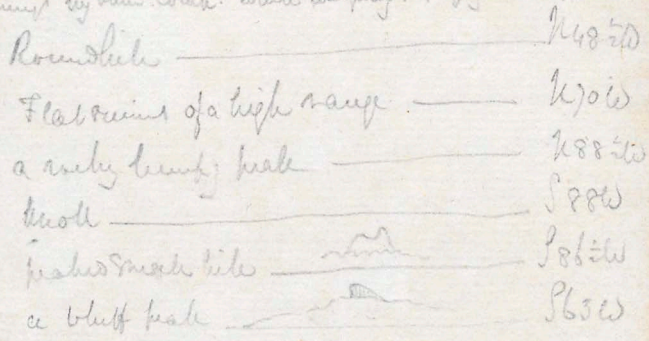 Round hill N48½W
Flat summit of a high range N70W
a rocky lumpy peak N88½W
Knoll S88W
peaked small hill S86½W
a bluff peak S63W